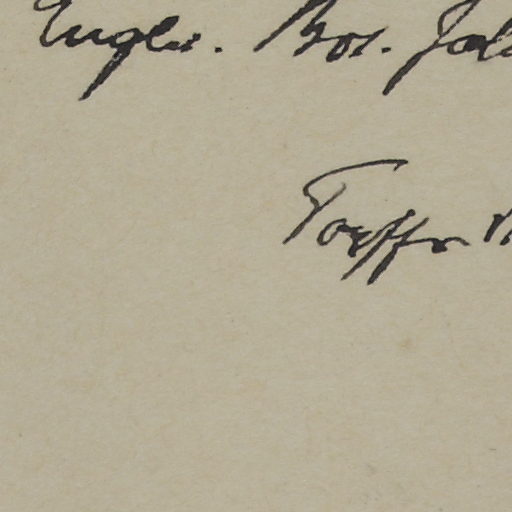 Engler. Bot. Jah
Toepffer